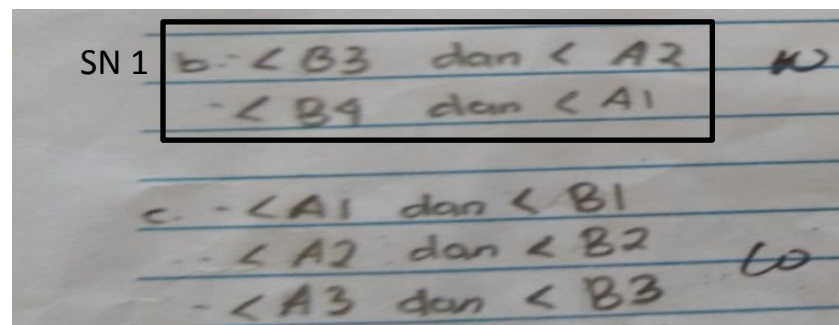 SN 1
b. - < B3 dan < A2
- < B4 dan < A1
c. - < A1 dan < B1
- < A2 dan < B2
- < A3 dan < B3